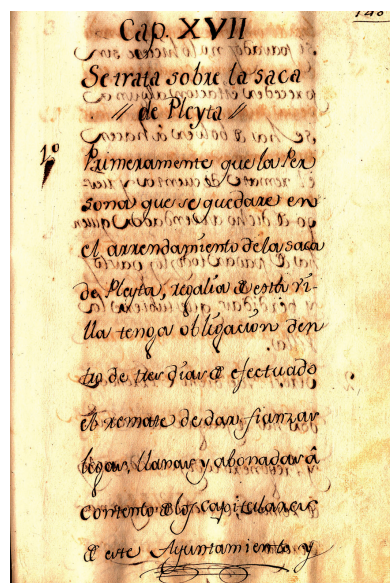 148
Cap. XVII
Se trata sobre la saca
de Pleyta
1º
Primeramente que la Per
sona que se quedare en
el arrendamiento de la saca
de Pleyta, regalia de esta vi-
lla tenga obligación den
tro de tres dias de efectuado
el remate de dar fianzas
legas, llanas y abonadas â
contento de los capitulares
de este Ayuntamiento y